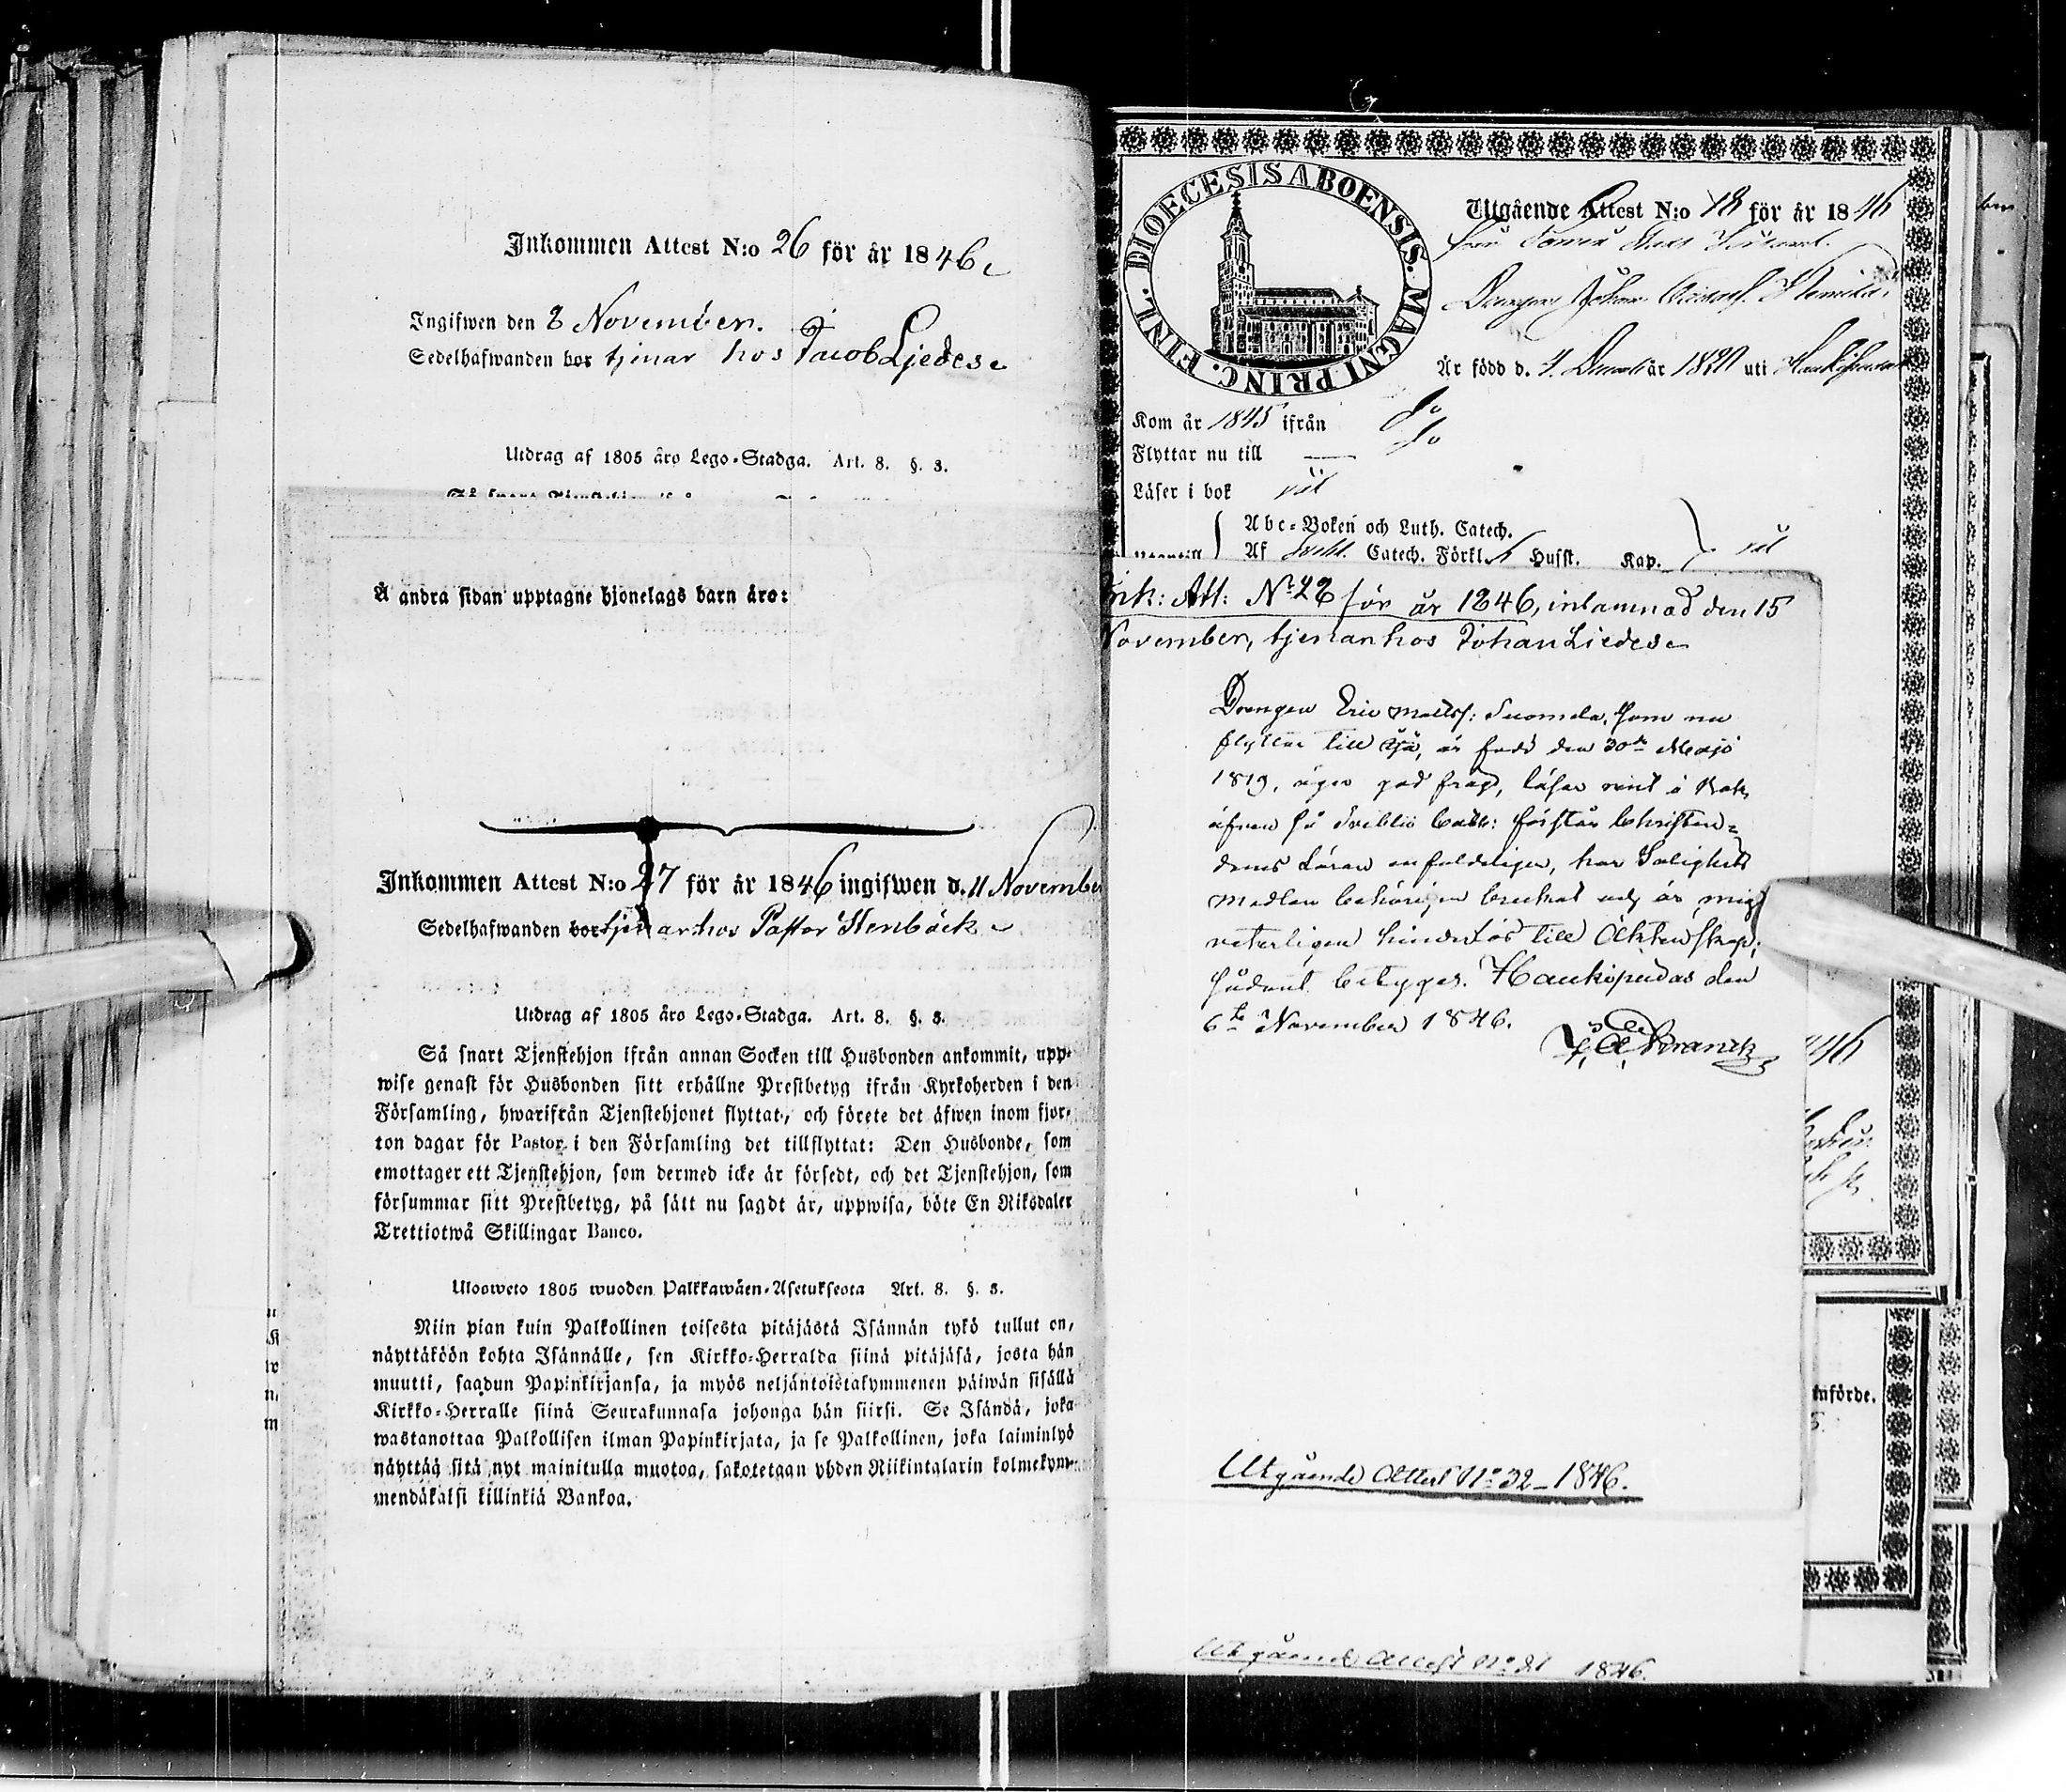 Inkommen Attest N:o 26 för år 1846
Ingifwen den 8 November.
Sedelhafwanden bor tjenar hos Jacob Ljedes
Utdrag af 1805 åro Lego-Stadga. Art. 8. §. 3.
Å andra sidan upptagne hjonelags barn äro:
Inkommen Attest N:o 27 för år 1846 ingifwen d. 11 November
Sedelhafwanden bor tjenar hos Pastor Stenbäck
Utdrag af 1805 åro Lego-Stadga. Art. 8. §. 3.
Så snart Tjenstehjon ifrån annan Socken till Husbonden ankommit, upp-
wise genast för Husbonden sitt erhållne Prestbetyg ifrån Kyrkoherden i den
Församling, hwarifrån Tjenstehjonet flyttat, och förete det äfwen inom fjor-
ton dagar för Pastor i den Församling det tillflyttat: Den Husbonde, som
emottager ett Tjenstehjon, som dermed icke är försedt, och det Tjenstehjon, som
försummar sitt Prestbetyg, på sätt nu sagdt är, uppwisa, böte En Riksdaler
Trettiotwå Skillingar Banco.
Ulosweto 1805 wuoden Palkkawäen-Asetuksesta Art. 8. §. 3.
Niin pian kuin Palkollinen toisesta pitäjästä Isännän tykö tullut on,
näyttäköön kohta Isännälle, sen Kirkko-Herralda siinä pitäjäsä, josta hän
muutti, saadun Papinkirjansa, ja myös neljäntoistakymmenen päiwän sisällä
Kirkko-Herralle siinä Seurakunnasa johonga hän siirsi. Se Isändä, joka
wastanottaa Palkollisen ilman Papinkirjata, ja se Palkollinen, joka laiminlyö
näyttää sitä nyt mainitulla muotoa, sakotetaan yhden Riikintalarin kolmekym-
mendäkaksi killinkiä Bankoa.
DIOECESIS ABOENSIS. MAGNI PRINC. FINL.
Utgående Attest N:o 18 för år 1846
Drengen Johan
Är född d. 4. år 1820 uti Haukipudas
Kom år 1845 ifrån do
Flyttar nu till do
Läser i bok väl
Abc-Boken och Luth. Catech.
Af Svebl. Catech. Förkl. Husst. Kap. väl
Ink: Att: No 28 för år 1846, inlamnad den 15
November, tjenar hos Johan Liedes
Drengen Eric Matts: Suomela, som nu
flyttar till Ijå, är född den 30de Maji
1819, äger god frägd, läser rent i Bok,
äfven så Sveblii Cate: förstår Christen=
doms Läran enfaldeligen, har Salighets
medlen behörigen brukat och är mig
veterligen hinderlös till Äktenskap;
sådant betygas. Haukipudas den
6te November 1846.
Utgående Attest No 32_1846.
Utgående Attest No 31 1846.
46
införde.